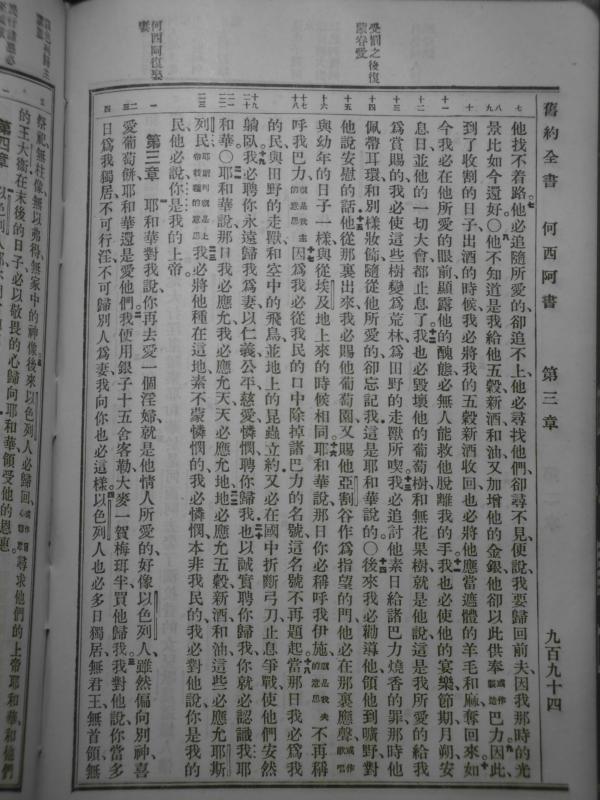 舊約全書 何西阿書 第三章 九百九十四
受罰之後復蒙眷愛
何西阿復娶妻
七 他找不着路他必追隨所愛的却追不上他必尋找他們却尋不見便說我要歸回前夫因我那時的光
景比如今還好〇他不知道是我給他五穀新酒和油又加增他的金銀他却以此供奉 巴力因此
到了收割的日子出酒的時候我必將我的五穀新酒收回也必將他應當遮體的羊毛和麻奪回來如
今我必在他所愛的眼前顯露他的醜態必無人能救他脫離我的手我也必使他的宴樂節期月朔安
息日並他的一切大會都止息了我也必毀壞他的葡萄樹和無花果樹就是他說這是我所愛的給我
爲賞賜的我必使這些樹變爲荒林爲田野的走獸所喫我必追討他素日給諸巴力燒香的罪那時他
佩帶耳環和別樣妝飾隨從他所愛的却忘記我這是耶和華說的〇後來我必勸導他領他到曠野對
他說安慰的話他從那裏出來我必賜他葡萄園又賜他亞割谷作爲指望的門他必在那裏應聲 或作歌唱
與幼年的日子一樣與從埃及地上來的時候相同耶和華說那日你必稱呼我伊施 就是我夫的意思 不再稱
呼我巴力 就是我主的意思 因爲我必從我民的口中除掉諸巴力的名號這名號不再題起當那日我必爲我
的民與田野的走獸和空中的飛鳥並地上的昆蟲立約又必在國中折斷弓刀止息爭戰使他們安然
躺臥我必聘你永遠歸我爲妻以仁義公平慈愛憐憫聘你歸我也以誠實聘你歸我你就必認識我耶
和華〇耶和華說那日我必應允我必應允天天必應允地地必應允五穀新酒和油這些必應允耶斯
列民 我必將他種在這地素不蒙憐憫的我必憐憫本非我民的我必對他說你是我的
民他必說你是我的上帝
第三章 耶和華對我說你再去愛一個淫婦就是他情人所愛的好像以色列人雖然偏向別神喜
愛葡萄餅耶和華還是愛他們我便用銀子十五舍客勒大麥一賀梅珥半買他歸我我對他說你當多
日爲我獨居不可行淫不可歸別人爲妻我向你也必這樣以色列人也必多日獨居無君王無首領無
祭祀無柱像無以弗得無家中的神像後來以色列人必歸回 尋求他們的上帝耶和華和他們
的王大衛在末後的日子必以敬畏的心歸向耶和華領受他的恩惠
第四章